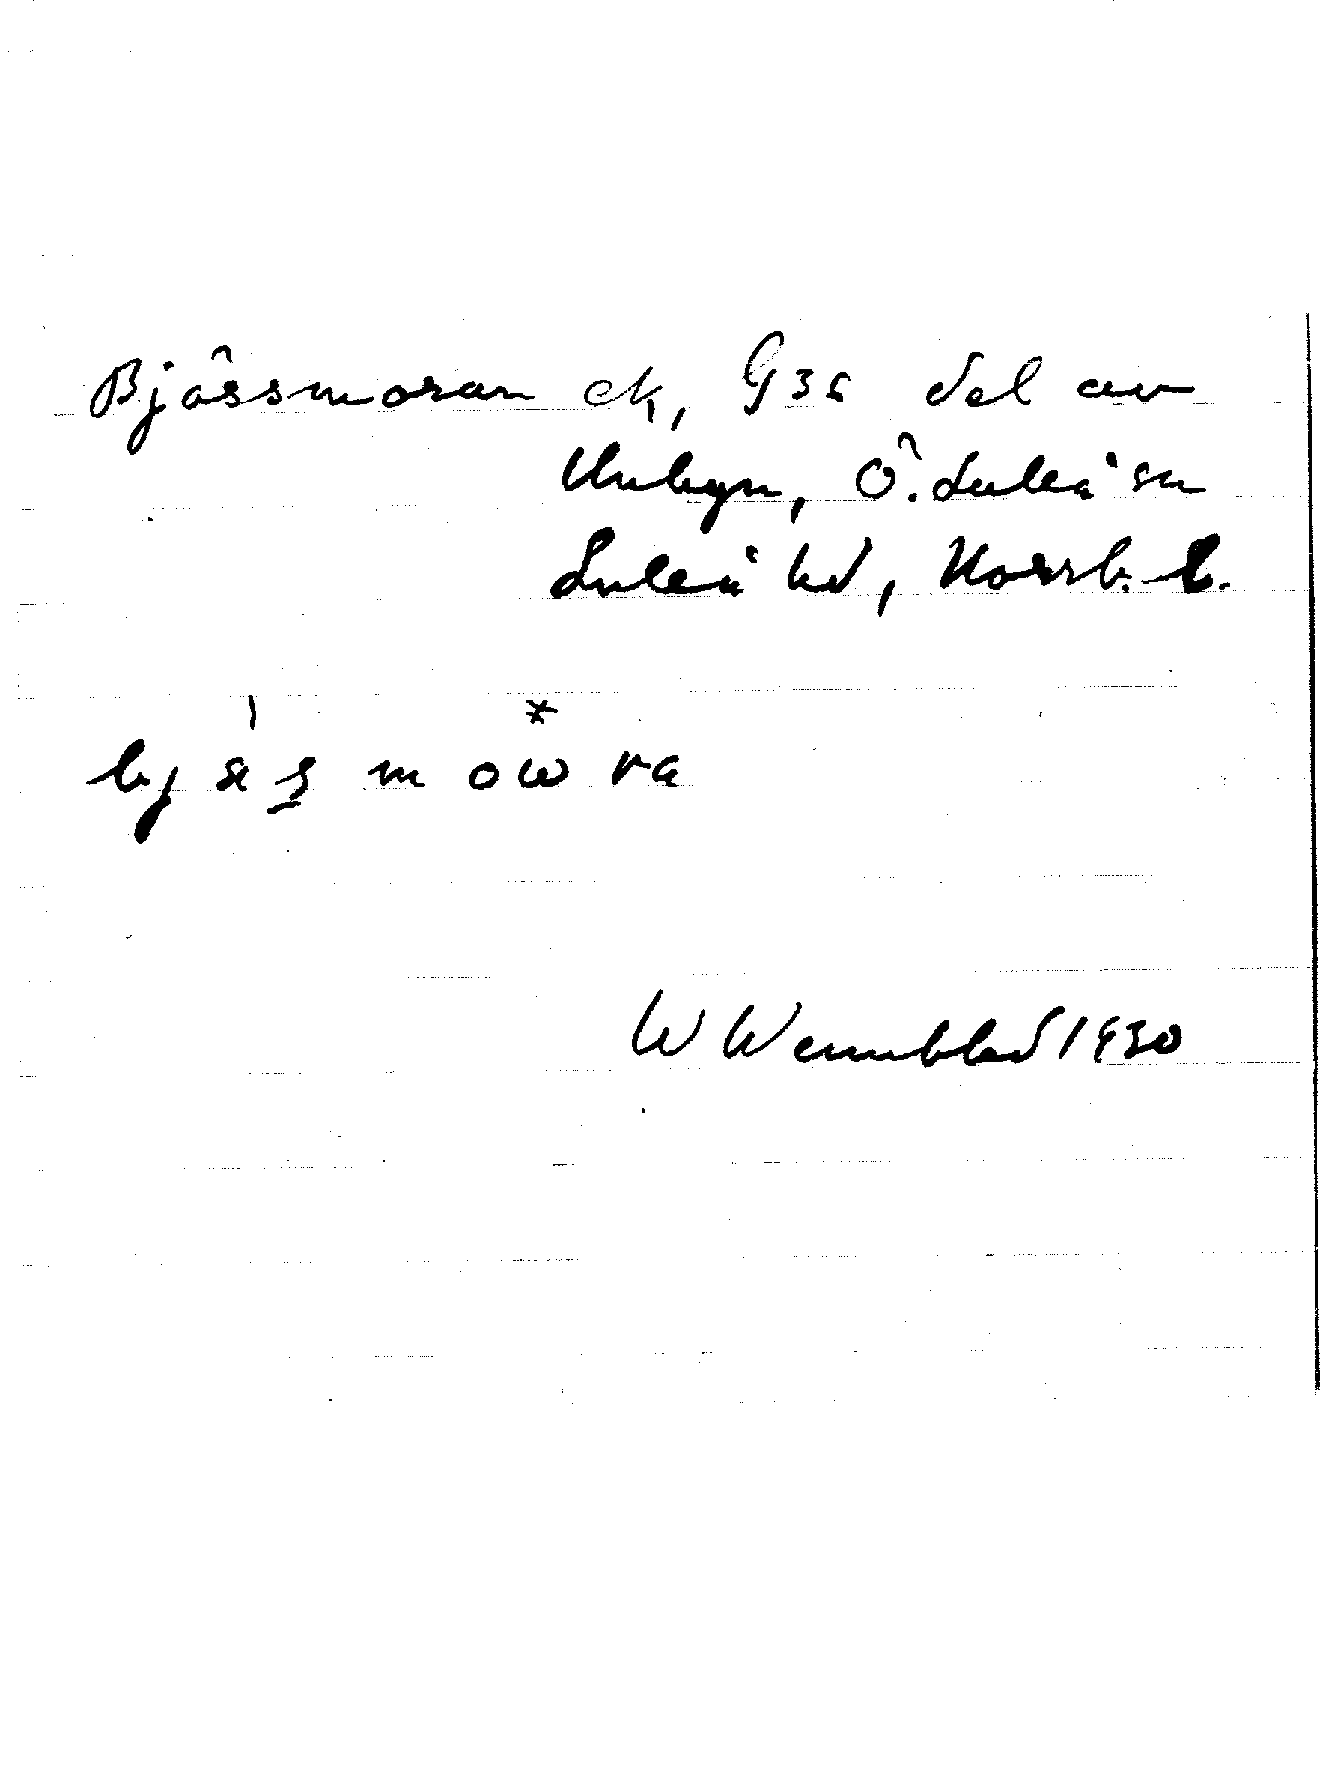 Bjössmoran ek, G3c del av
Unbyn, Ö. Luleå sn
Luleå hd, Norrb. l.
W Wennblad 1930